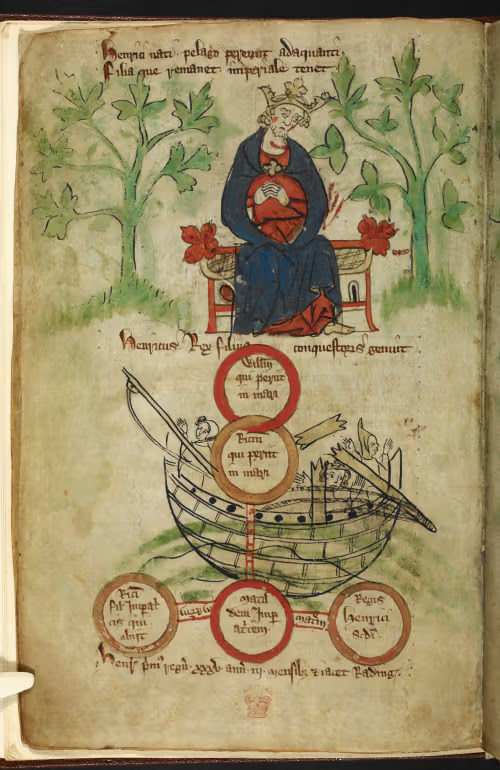 Henrici nati pelago perierunt adaquati
Filia que remanet imperiale tenet
Henricus Rex filius conquestoris genuit
Willm
qui periit
in mari
Ricm
qui periit
in mari
Ric
fil Impat
cis qui
obiit
Matil
dem Imp
atcem
matm
Regis
Henrici
scdi
Henr pm regn xxxv ann iii mensib & iacet Rading